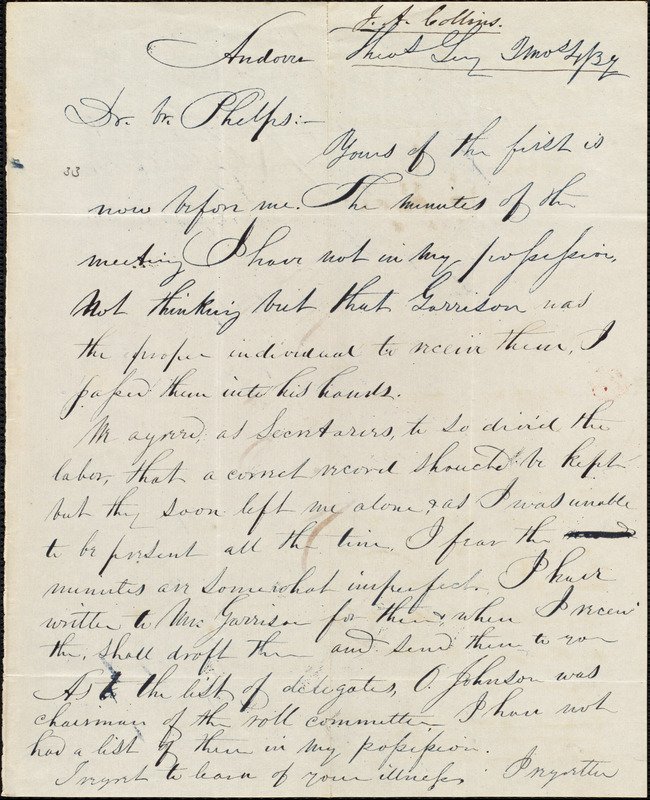 J. A. Collins.
Andover Theol Sem 7 mo 4/37
Dr. br. Phelps:—
Yours of the first is
33
now before me. The minutes of the
meeting I have not in my possession,
Not thinking but that Garrison was
the proper individual to receive them, I
passed them into his hands.
We agreed, as Secretaries, to so divid the
labor, that a correct record should be kept
but they soon left me alone, & as I was unable
to be present all the time, I fear the
minutes are somewhat imperfect. I have
written to Mr. Garrison for them & when I receiv
the, shall draft them and send them to you
As to the list of delegates, O. Johnson was
chairman of the roll committee I have not
had a list of them in my possession.
I regret to learn of your illness. I regretted